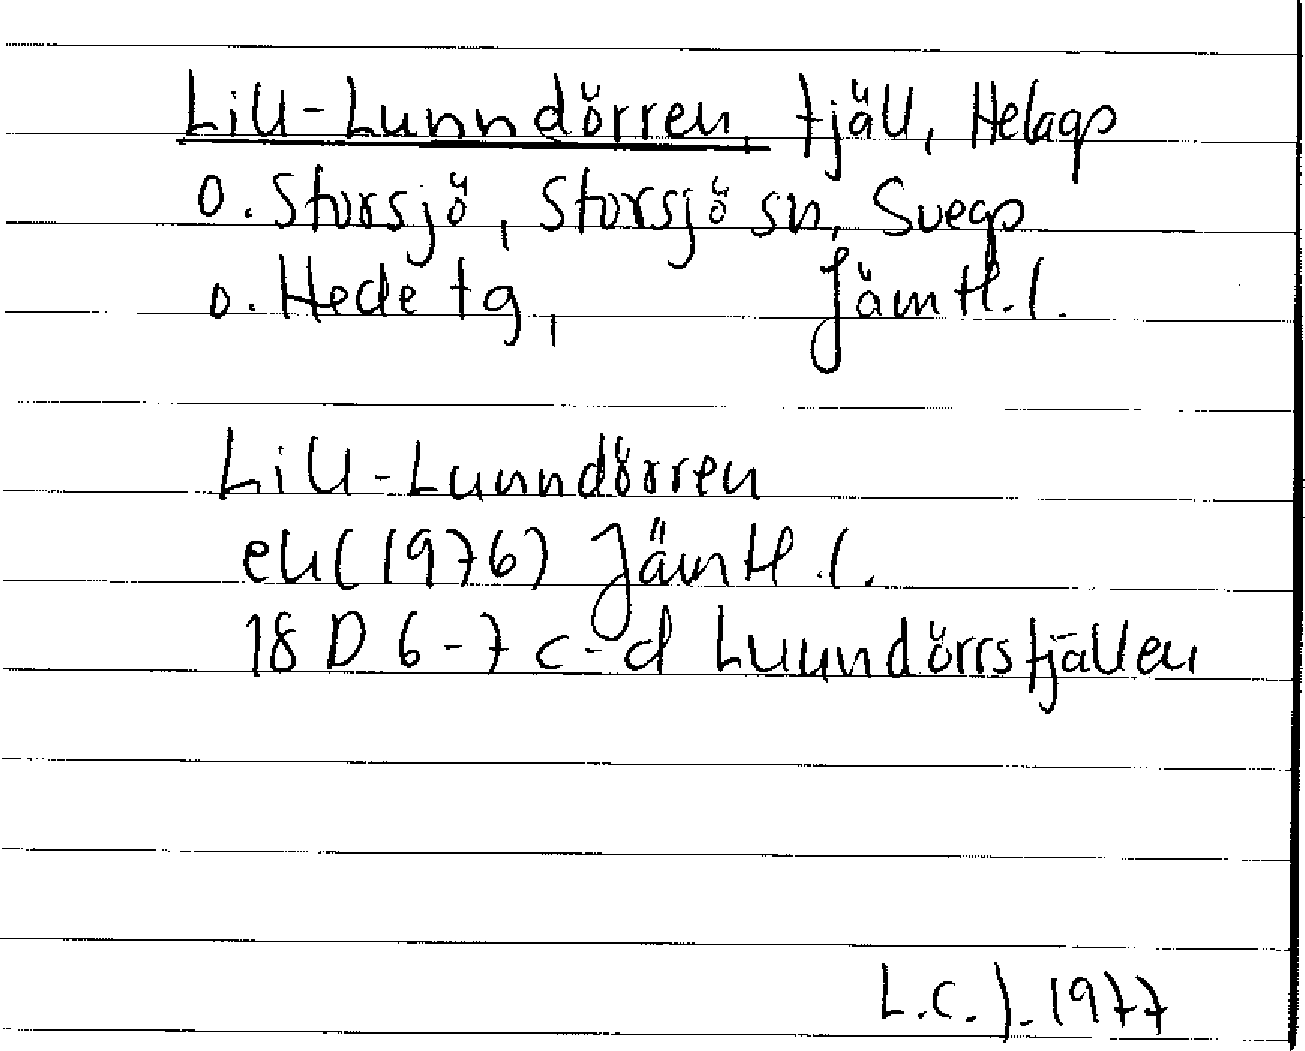 Lill-Lunndörren, fjäll, Helags
o. Storsjö, Storsjö sn, Svegs
o. Hede tg, Jämtl. l.
Lill-Lunndörren
ek (1976) Jämtl. l.
18 D 6-7 c-d Lunndörrsfjällen
L.C.J. 1977